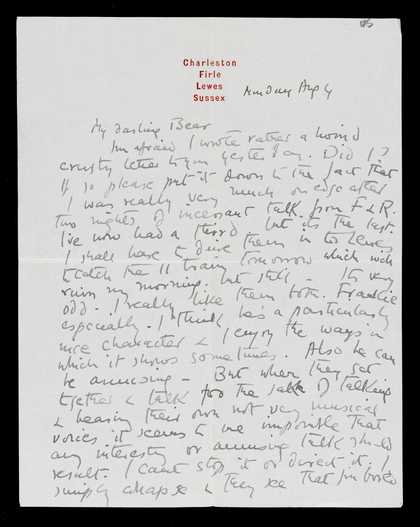 Charleston
Firle
Lewes
Sussex
Monday Aug 4
My darling Bear
I'm afraid I wrote rather a horrid
crusty letter to you yesterday. Did I?
If so please put it down to the fact that
I was really very much on edge after
two nights of incessant talk from F & R.
I've now had a third but it's the last.
I shall have to drive them in to Lewes
to catch the 11 train tomorrow which will
ruin my morning, but still – It's very
odd. I really like them both. Frankie
especially. I think has a particularly
nice character & I enjoy the ways in
which it shows sometimes. Also he can
be amusing – But when they get
together & talk for the sake of talking
& hearing their own not very musical
voices it seems to me impossible that
any interesting or amusing talk should
result. I can't stop it or direct it, I
simply collapse & they see that I'm bored